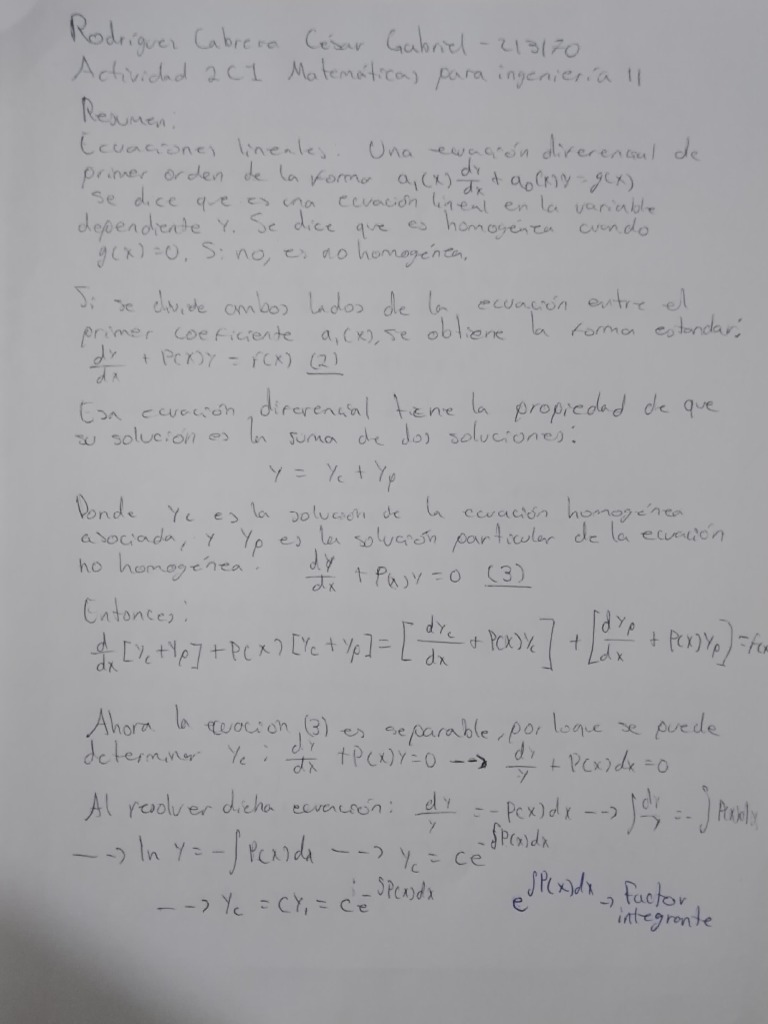 Rodríguez Cabrera César Gabriel - 213170
Actividad 2C1 Matemáticas para ingeniería II
Resumen:
Ecuaciones lineales. Una ecuación diferencial de
primer orden de la forma a₁(x) dy/dx + a₀(x)y = g(x)
se dice que es una ecuación lineal en la variable
dependiente y. Se dice que es homogénea cuando
g(x)=0. Si no, es no homogénea.
Si se divide ambos lados de la ecuación entre el
primer coeficiente a₁(x), se obtiene la forma estandar:
dy/dx + P(x)y = f(x) (2)
Esa ecuación diferencial tiene la propiedad de que
su solución es la suma de dos soluciones:
y = yc + yp
Donde yc es la solución de la ecuación homogénea
asociada, y yp es la solución particular de la ecuación
no homogénea. dy/dx + P(x)y = 0 (3)
Entonces:
d/dx [yc+yp] + P(x) [yc+yp] = [dyc/dx + P(x)yc] + [dyp/dx + P(x)yp] = f(x
Ahora la ecuación (3) es separable, por loque se puede
determinar yc : dy/dx + P(x)y=0 --→ dy/y + P(x)dx = 0
Al resolver dicha ecuación: dy/y = -P(x)dx --→ ∫dy/y = -∫P(x)dx
--→ ln y = -∫P(x)dx --→ yc = ce^-∫P(x)dx
--→ yc = cy₁ = ce^-∫P(x)dx e^∫P(x)dx → Factor
integrante